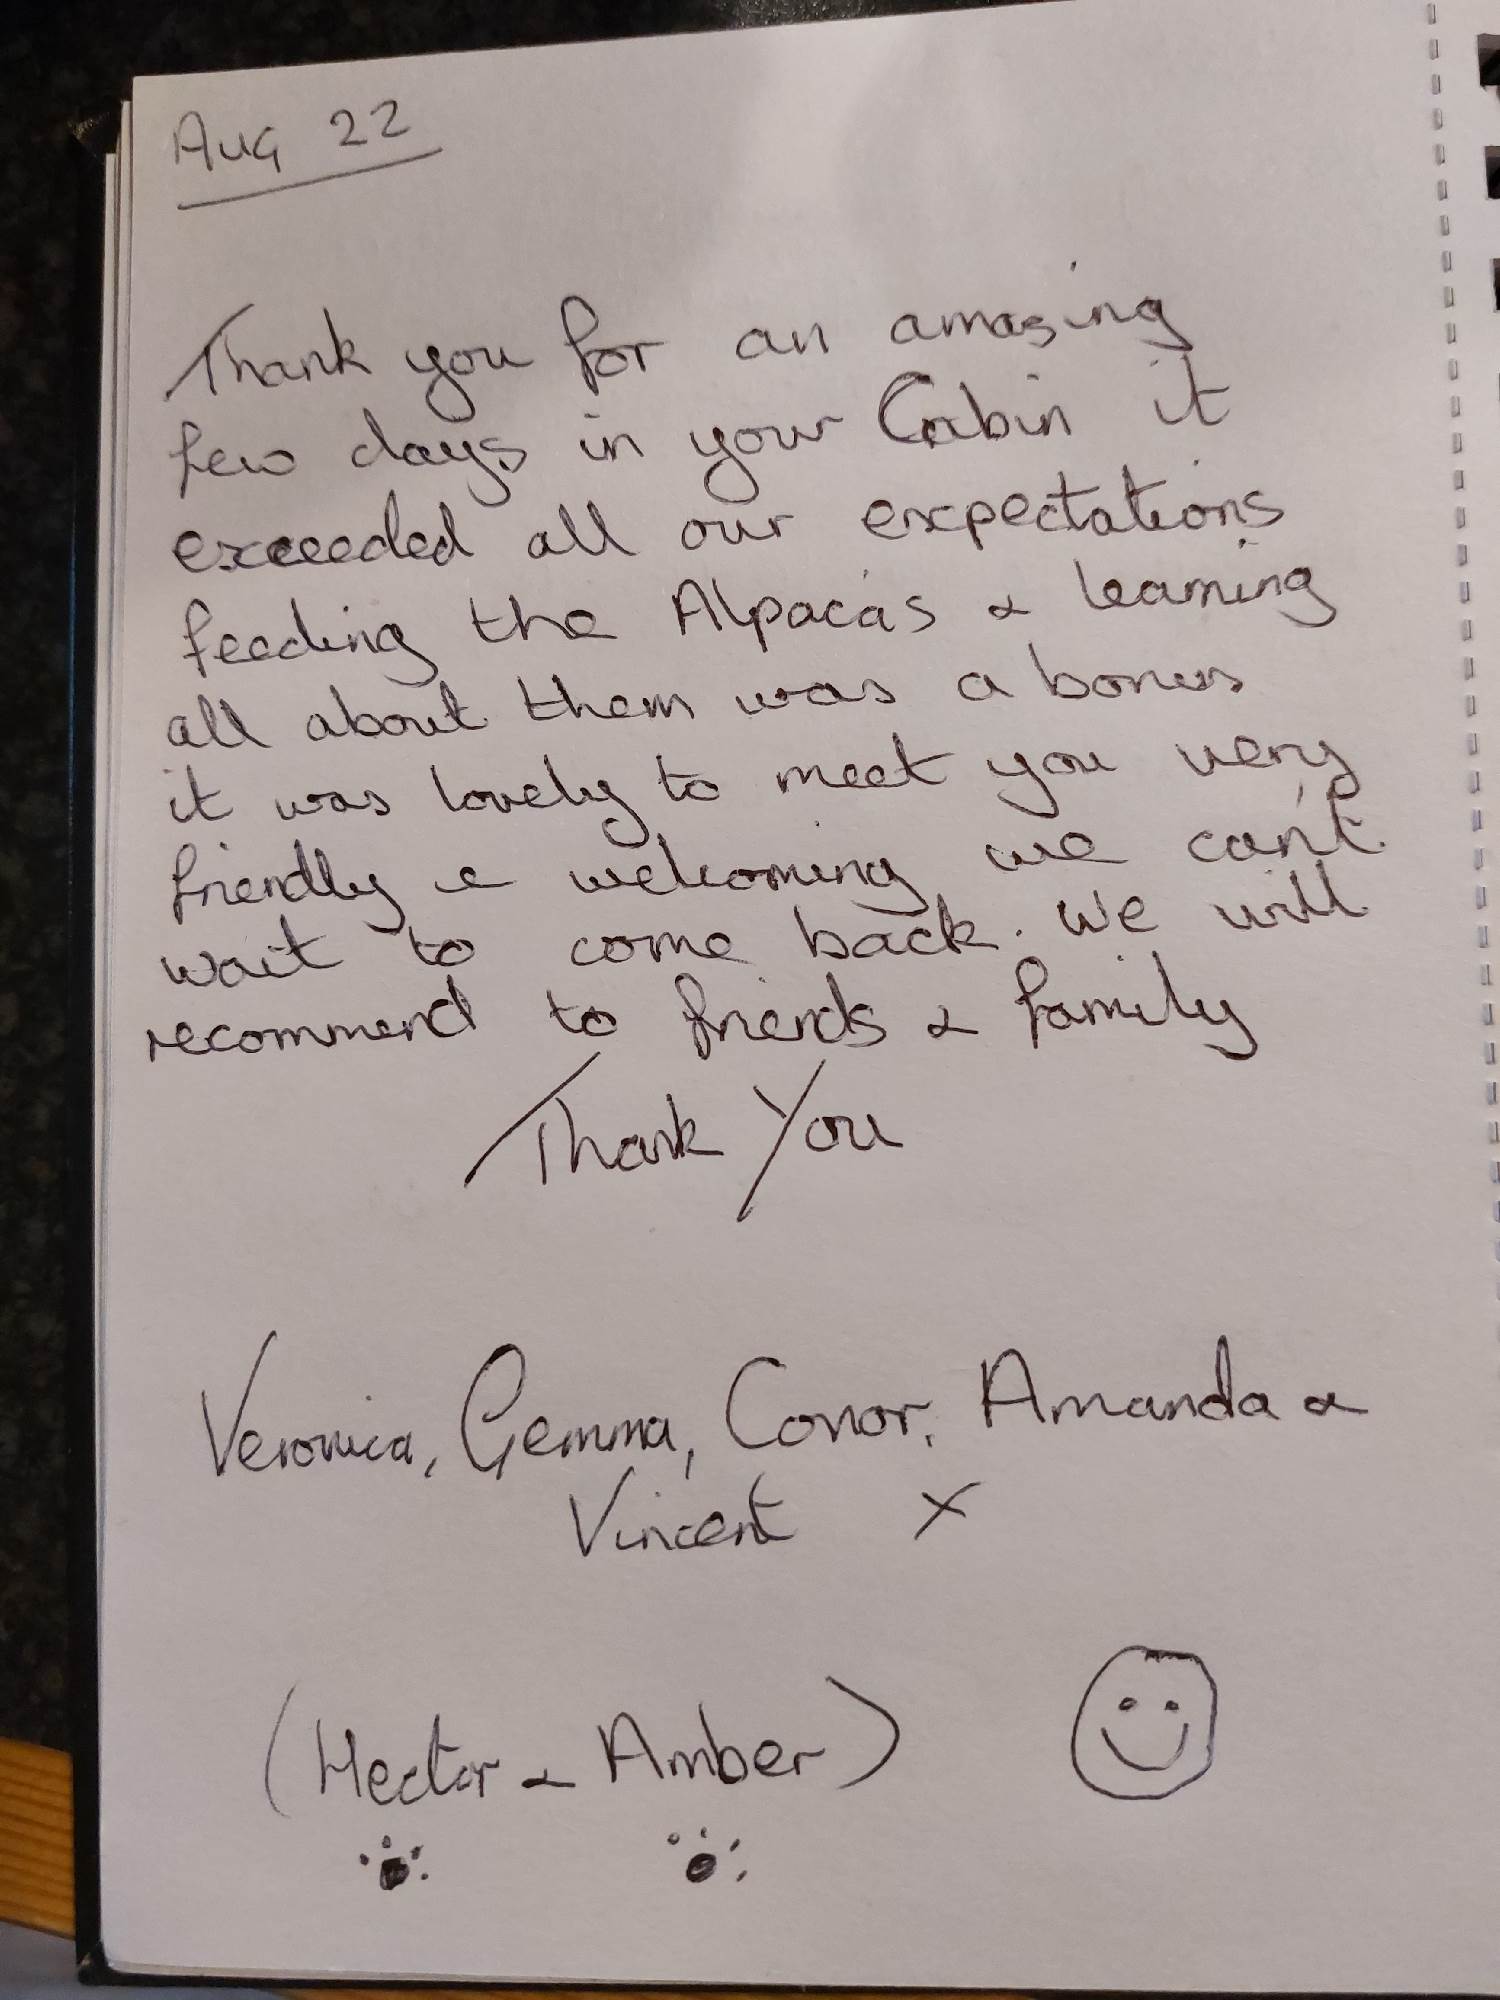 Aug 22
Thank you for an amazing
few days in your Cabin it
exceeded all our expectations
feeding the Alpacas & learning
all about them was a bonus
it was lovely to meet you very
friendly & welcoming we can't
wait to come back. We will
recommend to friends & family
Thank You
Veronica, Gemma, Conor, Amanda &
Vincent x
(Hector & Amber)